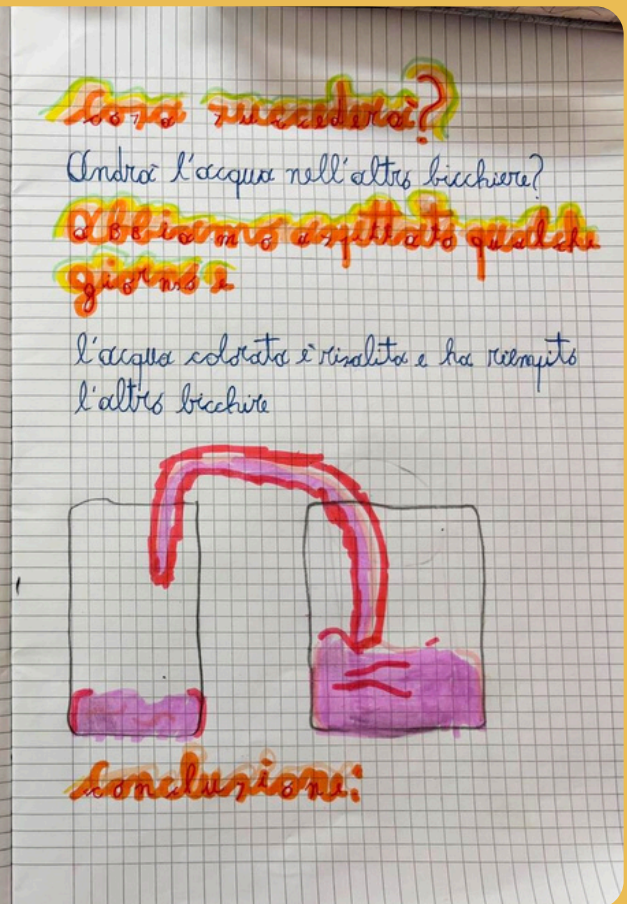 Cosa succederà?
Andrà l'acqua nell'altro bicchiere?
abbiamo aspettato qualche
giorno e
l'acqua colorata è risalita e ha riempito
l'altro bicchire
conclusione: